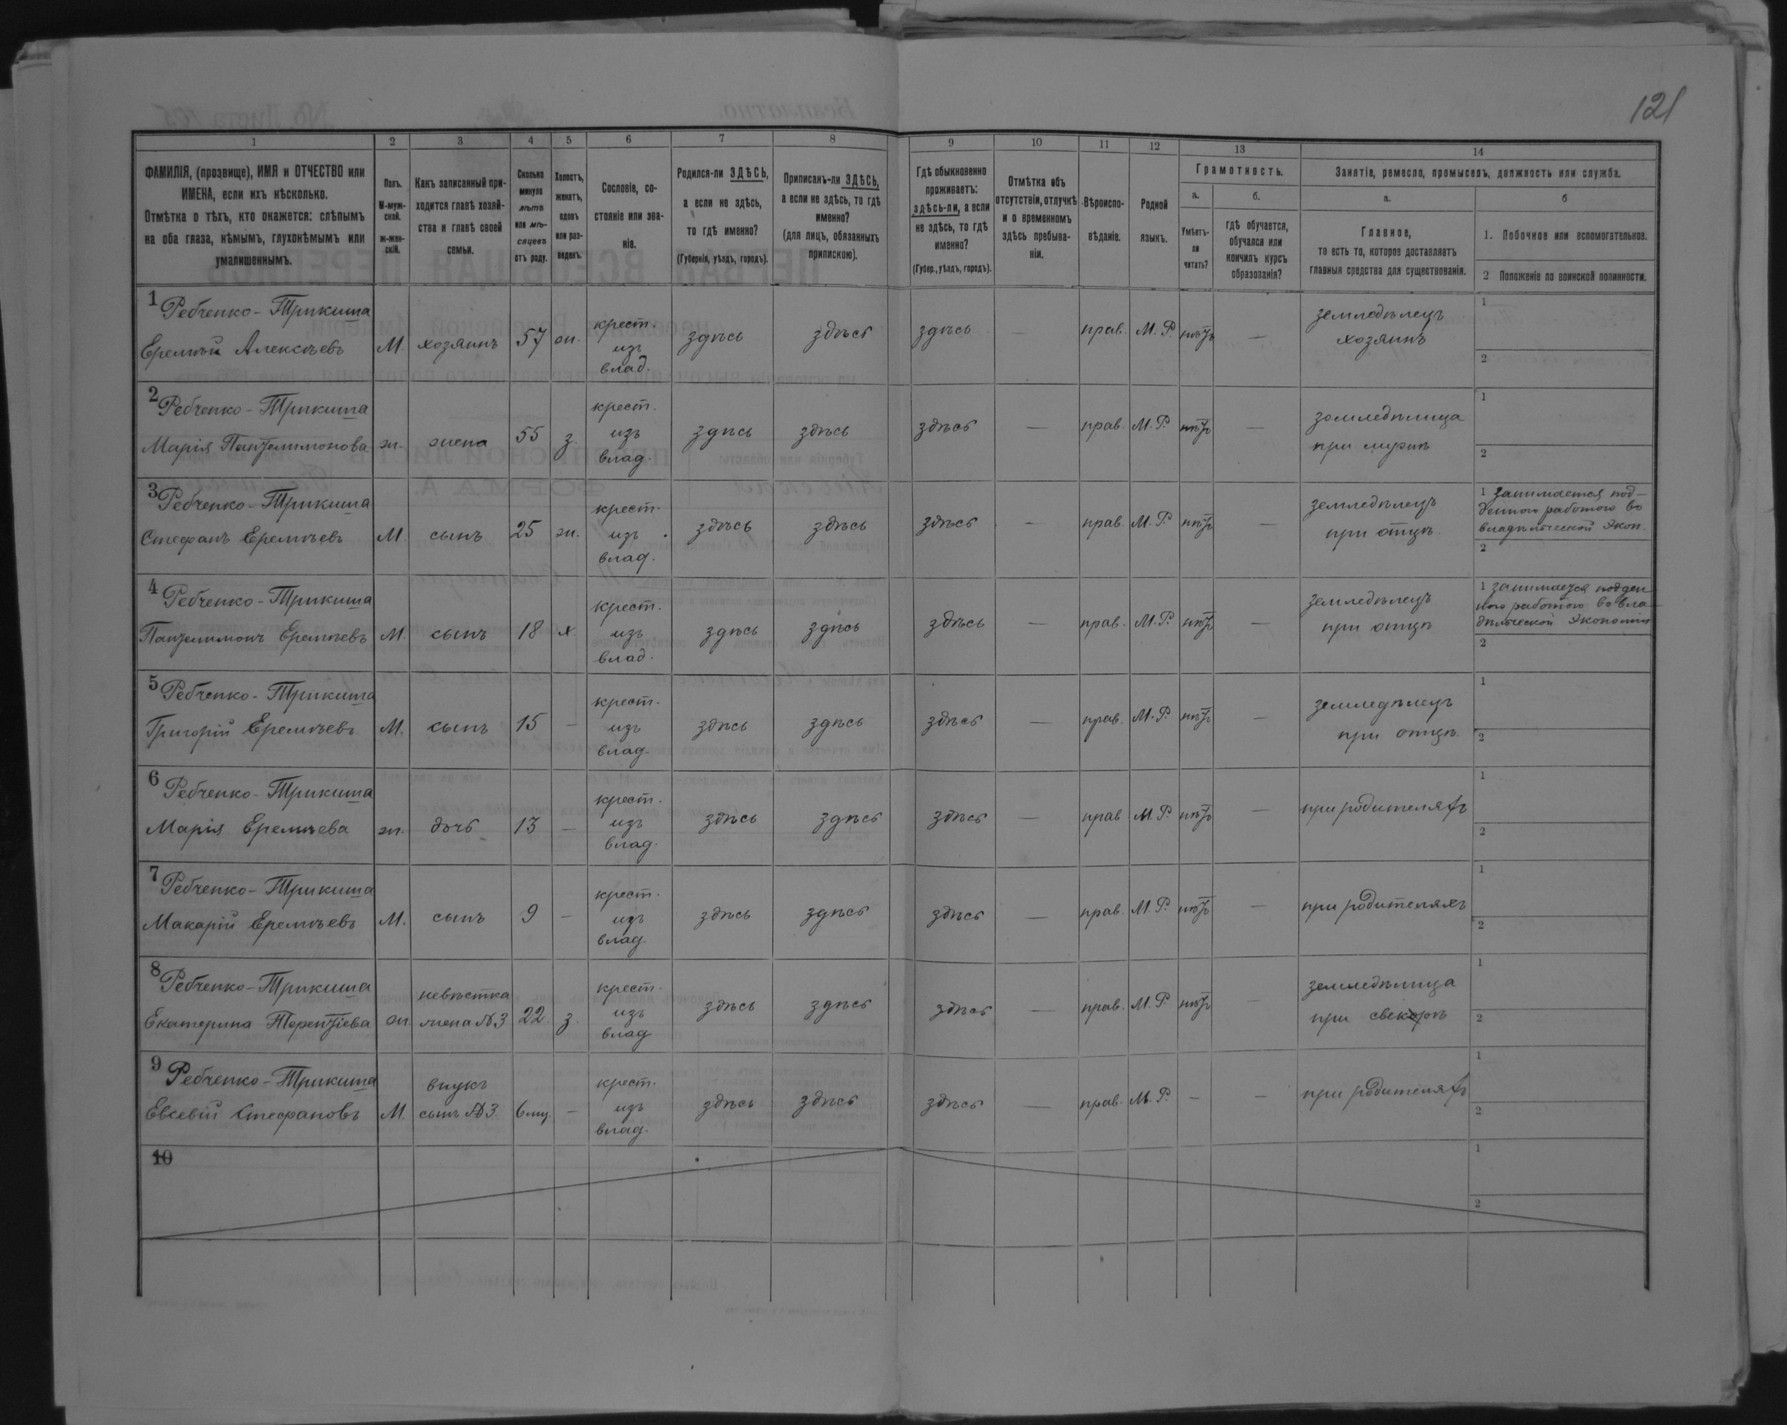 121
1
2
3
4
5
6
7
8
9
10
11
12
13
14
ФАМИЛІЯ, (прозвище), ИМЯ и ОТЧЕСТВО или
ИМЕНА, если ихъ нѣсколько.
Отмѣтка о тѣхъ, кто окажется: слѣпымъ
на оба глаза, нѣмымъ, глухонѣмымъ или
умалишеннымъ.
Полъ.
М-муж-
ской.
ж-жен-
скій.
Какъ записанный при-
ходится главѣ хозяй-
ства и главѣ своей
семьи.
Сколько
минуло
лѣтъ
или мѣ-
сяцевъ
отъ роду.
Холостъ,
женатъ,
вдовъ
или раз-
веденъ.
Сословіе, со-
стояніе или зва-
ніе.
Родился-ли ЗДѢСЬ,
а если не здѣсь,
то гдѣ именно?
(Губернія, уѣздъ, городъ).
Приписанъ-ли ЗДѢСЬ,
а если не здѣсь, то гдѣ
именно?
(для лицъ, обязанныхъ
припискою).
Гдѣ обыкновенно
проживаетъ:
здѣсь-ли, а если
не здѣсь, то гдѣ
именно?
(Губер., уѣздъ, городъ).
Отмѣтка объ
отсутствіи, отлучкѣ
и о временномъ
здѣсь пребыва-
ніи.
Вѣроиспо-
вѣданіе.
Родной
языкъ.
Грамотность.
а.
Умѣетъ-
ли
читать?
б.
гдѣ обучается,
обучался или
кончилъ курсъ
образованія?
Занятіе, ремесло, промыселъ, должность или служба.
а.
Главное,
то есть то, которое доставляетъ
главныя средства для существованія.
б
1. Побочное или вспомогательное.
2 Положеніе по воинской повинности.
1 Ребченко-Трикиша
Еремѣй Алексѣевъ
М. хозяинъ 57 ж.
крест.
изъ
влад.
здѣсь здѣсь здѣсь — прав. М. Р. нѣтъ —
земледѣлецъ
хозяинъ
1
2
2 Ребченко-Трикиша
Марія Пантелимонова
ж. жена 55 з.
крест.
изъ
влад.
здѣсь здѣсь здѣсь — прав. М. Р. нѣтъ —
земледѣлица
при мужѣ
1
2
3 Ребченко-Трикиша
Стефанъ Еремѣевъ
М. сынъ 25 ж.
крест.
изъ
влад.
здѣсь здѣсь здѣсь — прав. М. Р. нѣтъ —
земледѣлецъ
при отцѣ
1 занимается под-
денною работою во
владѣльческой экон.
2
4 Ребченко-Трикиша
Пантелимонъ Еремѣевъ
М. сынъ 18 х.
крест.
изъ
влад.
здѣсь здѣсь здѣсь — прав. М. Р. нѣтъ —
земледѣлецъ
при отцѣ
1 занимается подден-
ною работою во вла-
дѣльческой экономіи
2
5 Ребченко-Трикиша
Григорій Еремѣевъ
М. сынъ 15 —
крест.
изъ
влад.
здѣсь здѣсь здѣсь — прав. М. Р. нѣтъ —
земледѣлецъ
при отцѣ
1
2
6 Ребченко-Трикиша
Марія Еремѣева
ж. дочь 13 —
крест.
изъ
влад.
здѣсь здѣсь здѣсь — прав М. Р. нѣтъ —
при родителяхъ
1
2
7 Ребченко-Трикиша
Макарій Еремѣевъ
М. сынъ 9 —
крест.
изъ
влад.
здѣсь здѣсь здѣсь — прав. М. Р. нѣтъ —
при родителяхъ
1
2
8 Ребченко-Трикиша
Екатерина Терентіева
ж
невѣстка
жена №3
22 з.
крест.
изъ
влад
здѣсь здѣсь здѣсь — прав. М. Р. нѣтъ —
земледѣлица
при свекорѣ
1
2
9 Ребченко-Трикиша
Евсевій Стефановъ
М.
внукъ
сынъ №3
6 мц. —
крест.
изъ
влад.
здѣсь здѣсь здѣсь — прав. М. Р. — —
при родителяхъ
1
2
10
1
2